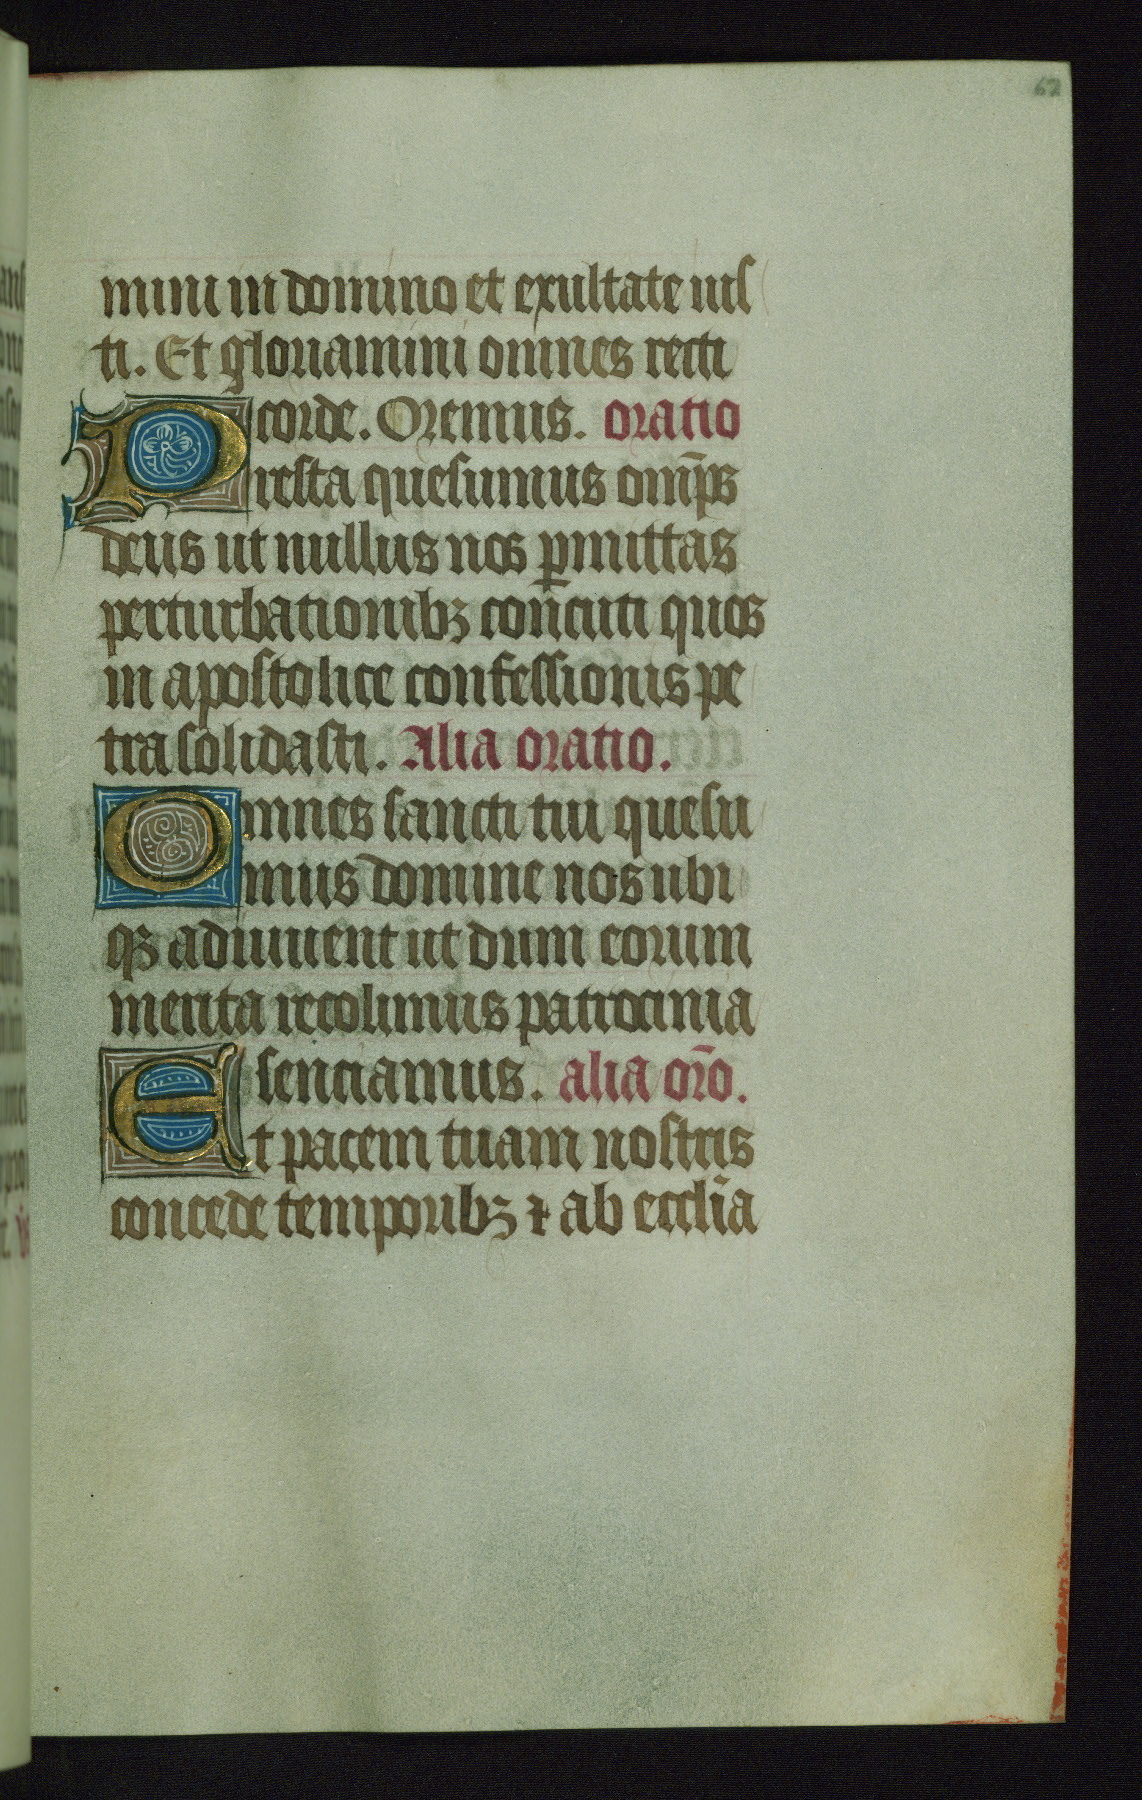 67
mini in domino et exultate ius
ti. Et gloriamini omnes recti
corde. Oremus. oratio
Presta quesumus om̄ps
deus ut nullus nos ꝑmittas
perturbationibꝫ concuti quos
in apostolice confessionis pe
tra solidasti. Alia oratio.
Omnes sancti tui quesu
mus domine nos ubi
qꝫ adiuuent ut dum eorum
merita recolimus patrocinia
senciamus. alia or̄o.
Et pacem tuam nostris
concede temporibꝫ ⁊ ab eccl̄ia